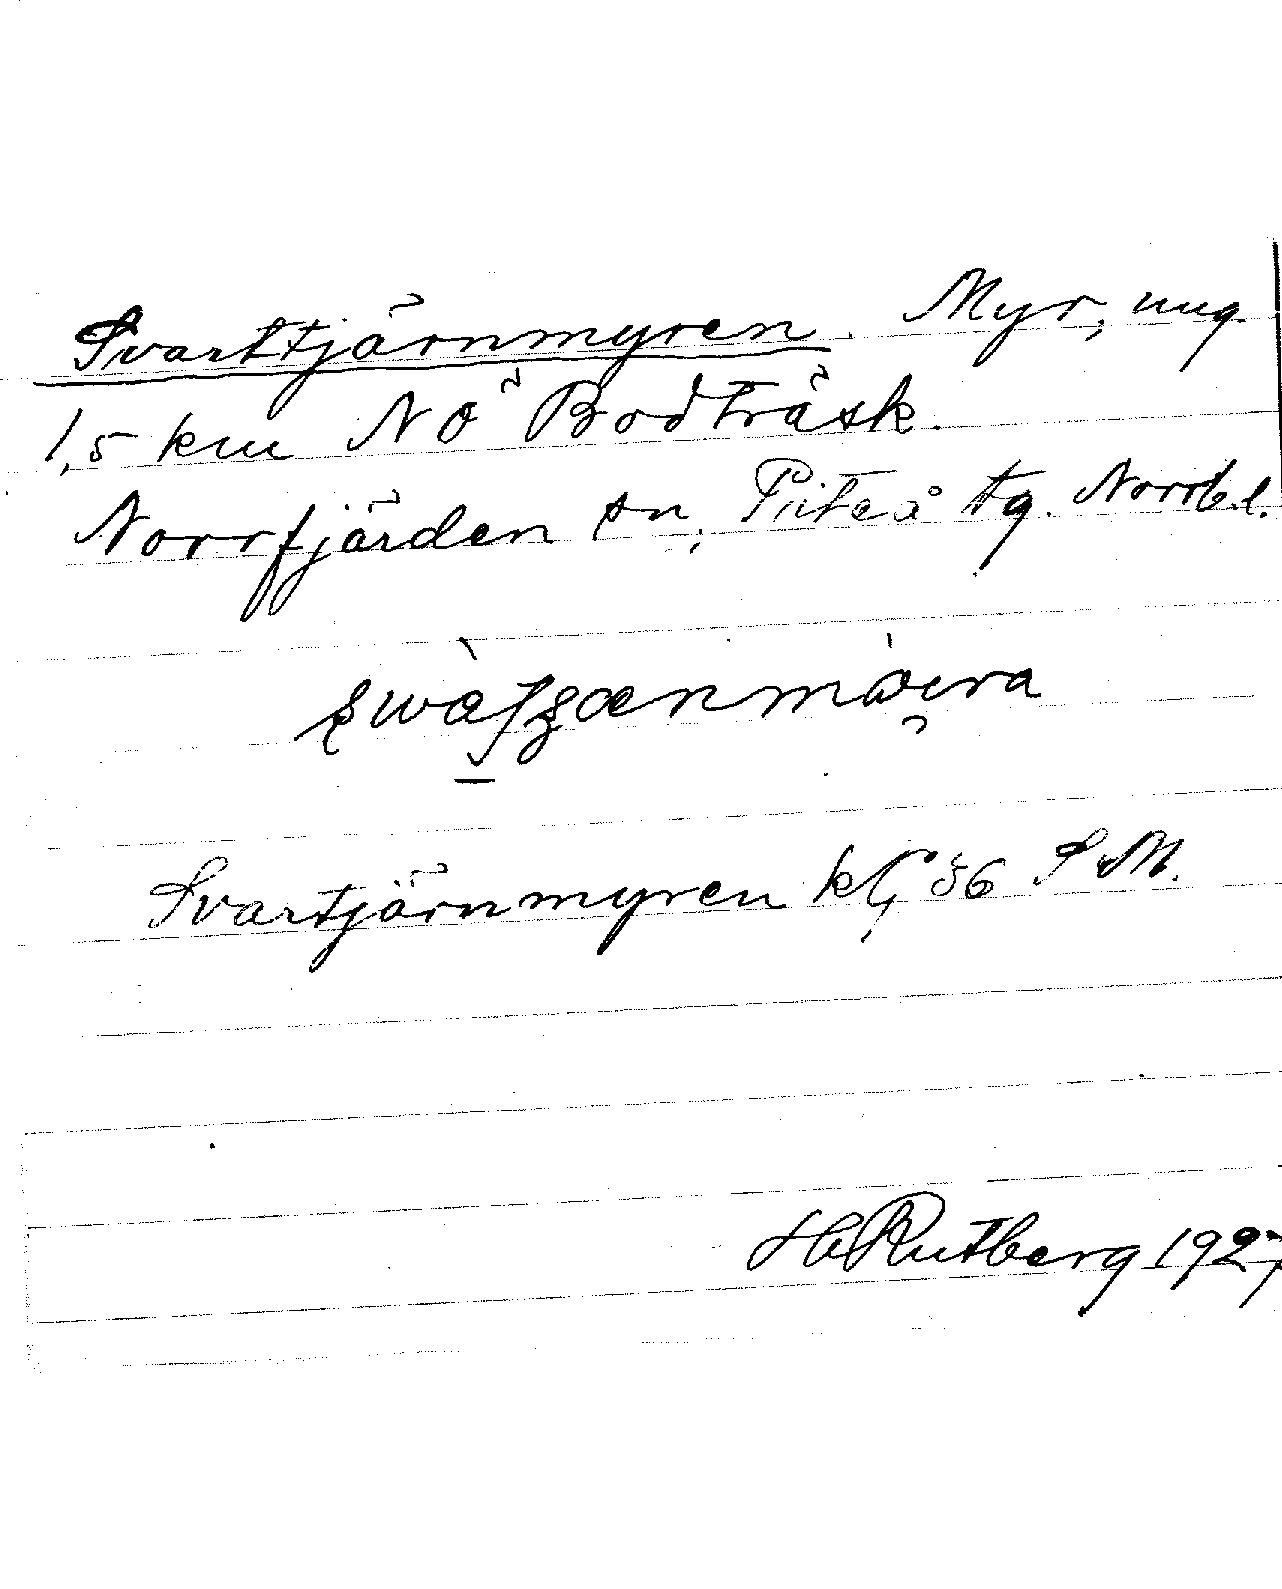 Svarttjärnmyren. Myr, ung
1,5 km NÖ Bodträsk.
Norrfjärden sn, Piteå tg. Norrb. l.
Svartjärnmyren kG 36 SvM.
H Rutberg 1927